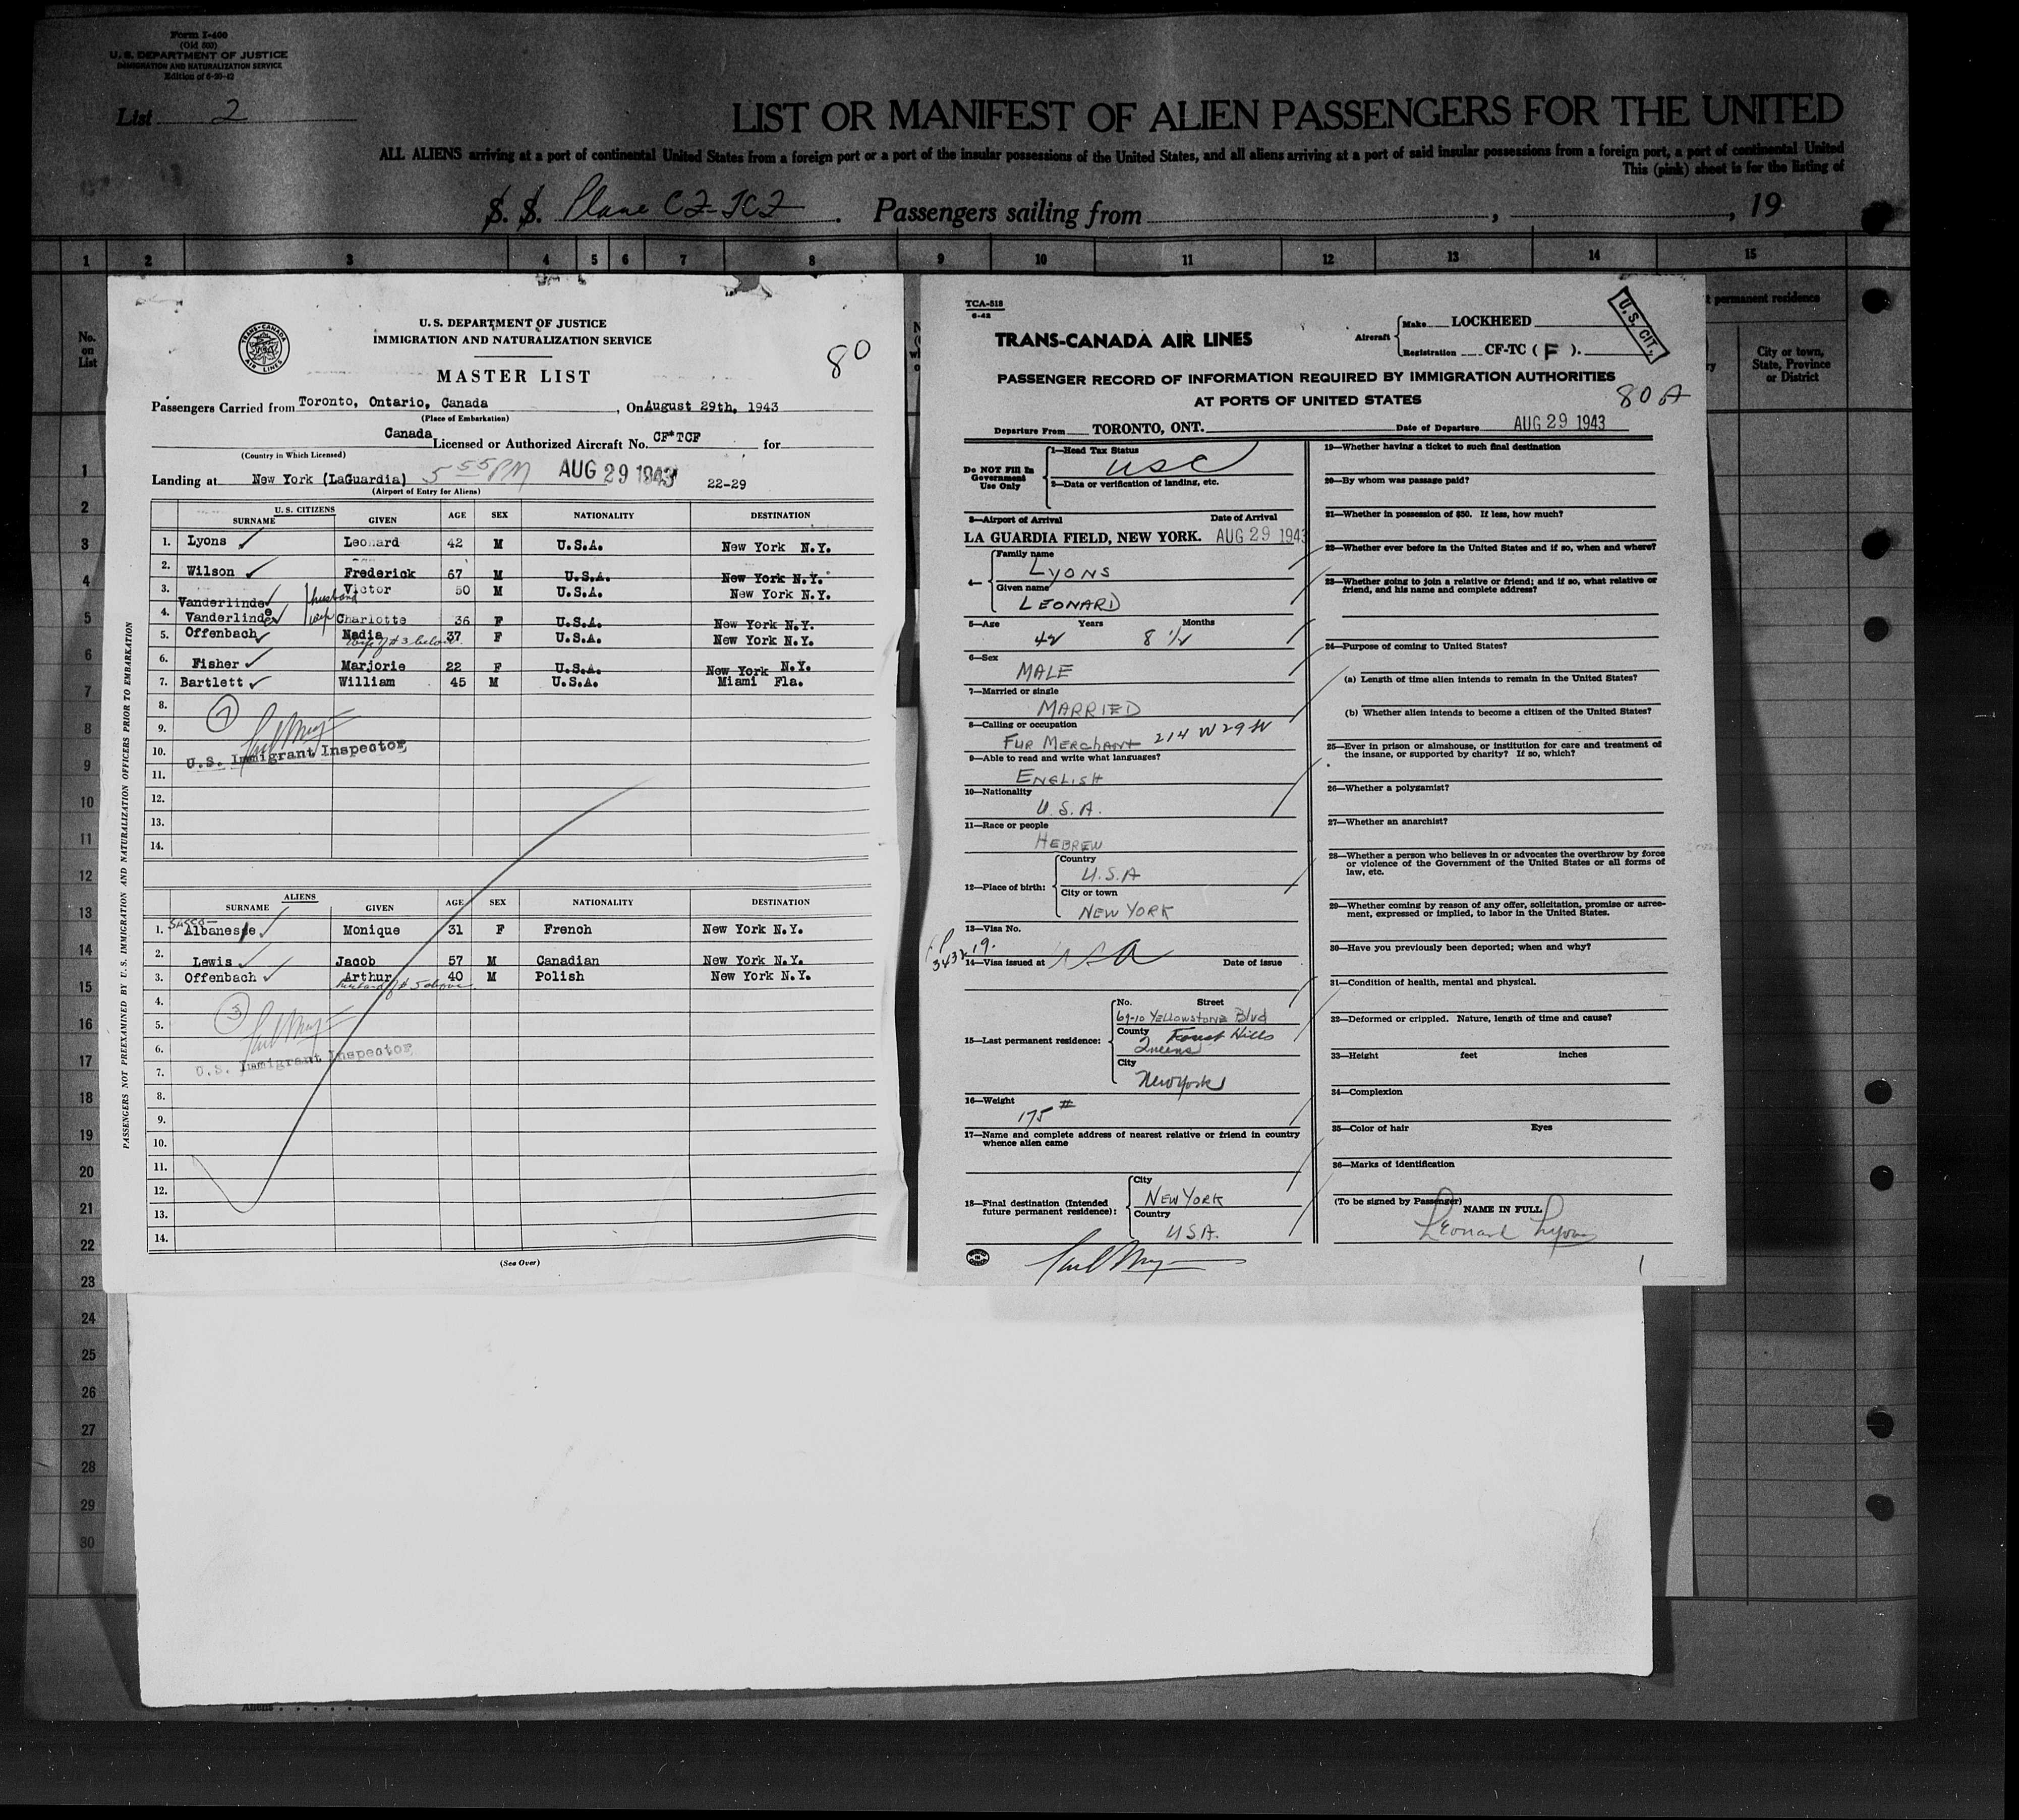 Form I-400
(Old 500)
U. S. DEPARTMENT OF JUSTICE
IMMIGRATION AND NATURALIZATION SERVICE
Edition of 6-20-42
List 2
LIST OR MANIFEST OF ALIEN PASSENGERS FOR THE UNITED
ALL ALIENS arriving at a port of continental United States from a foreign port or a port of the insular possessions of the United States, and all aliens arriving at a port of said insular possessions from a foreign port, a port of continental United
This (pink) sheet is for the listing of
S. S. Plane CF-TCF . Passengers sailing from , , 19
1 2 3 4 5 6 7 8 9 10 11 12 13 14 15
No. on List
permanent residence
City or town, State, Province or District
1
2
3
4
5
6
7
8
9
10
11
12
13
14
15
16
17
18
19
20
21
22
23
24
25
26
27
28
29
30
TRANS-CANADA AIR LINES
U. S. DEPARTMENT OF JUSTICE
IMMIGRATION AND NATURALIZATION SERVICE
80
MASTER LIST
Passengers Carried from Toronto, Ontario, Canada , On August 29th, 1943
(Place of Embarkation)
Canada Licensed or Authorized Aircraft No. CF*TCF for
(Country in Which Licensed)
Landing at New York (LaGuardia) 5 55 PM AUG 29 1943 22-29
(Airport of Entry for Aliens)
U. S. CITIZENS
SURNAME GIVEN AGE SEX NATIONALITY DESTINATION
1. Lyons Leonard 42 M U.S.A. New York N.Y.
2. Wilson Frederick 67 M U.S.A. New York N.Y.
3. Vanderlinde husband Victor 50 M U.S.A. New York N.Y.
4. Vanderlinde wife Charlotte 36 F U.S.A. New York N.Y.
5. Offenbach Nadia 37 F U.S.A. New York N.Y.
wife of #3 below
6. Fisher Marjorie 22 F U.S.A. New York N.Y.
7. Bartlett William 45 M U.S.A. Miami Fla.
8.
7
9.
10. U.S. Immigrant Inspector
11.
12.
13.
14.
ALIENS
SURNAME GIVEN AGE SEX NATIONALITY DESTINATION
1. Albanese Monique 31 F French New York N.Y.
2. Lewis Jacob 57 M Canadian New York N.Y.
3. Offenbach Arthur 40 M Polish New York N.Y.
husband of #5 above
4.
3
5.
6.
U.S. Immigrant Inspector
7.
8.
9.
10.
11.
12.
13.
14.
(See Over)
PASSENGERS NOT PREEXAMINED BY U.S. IMMIGRATION AND NATURALIZATION OFFICERS PRIOR TO EMBARKATION
TCA-518
6-42
TRANS-CANADA AIR LINES
Aircraft Make LOCKHEED
Registration CF-TC ( F ).
U. S. CIT.
PASSENGER RECORD OF INFORMATION REQUIRED BY IMMIGRATION AUTHORITIES
AT PORTS OF UNITED STATES
80 A
Departure From TORONTO, ONT. Date of Departure AUG 29 1943
Do NOT Fill In Government Use Only
1—Head Tax Status
USC
2—Data or verification of landing, etc.
3—Airport of Arrival Date of Arrival
LA GUARDIA FIELD, NEW YORK. AUG 29 1943
4— Family name
LYONS
Given name
LEONARD
5—Age Years Months
42 8 1/2
6—Sex
MALE
7—Married or single
MARRIED
8—Calling or occupation
FUR MERCHANT 214 W 29 St
9—Able to read and write what languages?
ENGLISH
10—Nationality
U.S.A.
11—Race or people
HEBREW
12—Place of birth: Country
U.S.A
City or town
NEW YORK
13—Visa No.
14—Visa issued at Date of issue
15—Last permanent residence: No. Street
69-10 YELLOWSTONE Blvd
County Forest Hills
Queens
City
New York
16—Weight
175 #
17—Name and complete address of nearest relative or friend in country
whence alien came
18—Final destination (Intended future permanent residence): City
NEW YORK
Country
U.S.A.
19—Whether having a ticket to such final destination
20—By whom was passage paid?
21—Whether in possession of $50. If less, how much?
22—Whether ever before in the United States and if so, when and where?
23—Whether going to join a relative or friend; and if so, what relative or
friend, and his name and complete address?
24—Purpose of coming to United States?
(a) Length of time alien intends to remain in the United States?
(b) Whether alien intends to become a citizen of the United States?
25—Ever in prison or almshouse, or institution for care and treatment of
the insane, or supported by charity? If so, which?
26—Whether a polygamist?
27—Whether an anarchist?
28—Whether a person who believes in or advocates the overthrow by force
or violence of the Government of the United States or all forms of
law, etc.
29—Whether coming by reason of any offer, solicitation, promise or agree-
ment, expressed or implied, to labor in the United States.
30—Have you previously been deported; when and why?
31—Condition of health, mental and physical.
32—Deformed or crippled. Nature, length of time and cause?
33—Height feet inches
34—Complexion
35—Color of hair Eyes
36—Marks of identification
(To be signed by Passenger) NAME IN FULL
Leonard Lyons
Aliens